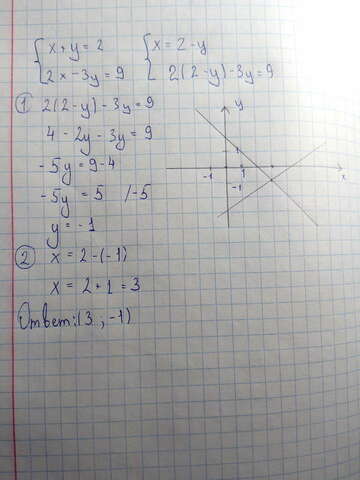 { x + y = 2    { x = 2 - y
{ 2x - 3y = 9    { 2(2 - y) - 3y = 9
① 2(2 - y) - 3y = 9
4 - 2y - 3y = 9
-5y = 9 - 4
-5y = 5  /-5
y = -1
② x = 2 - (-1)
x = 2 + 1 = 3
Ответ: (3 ; -1)
y
1
-1 1 x
-1